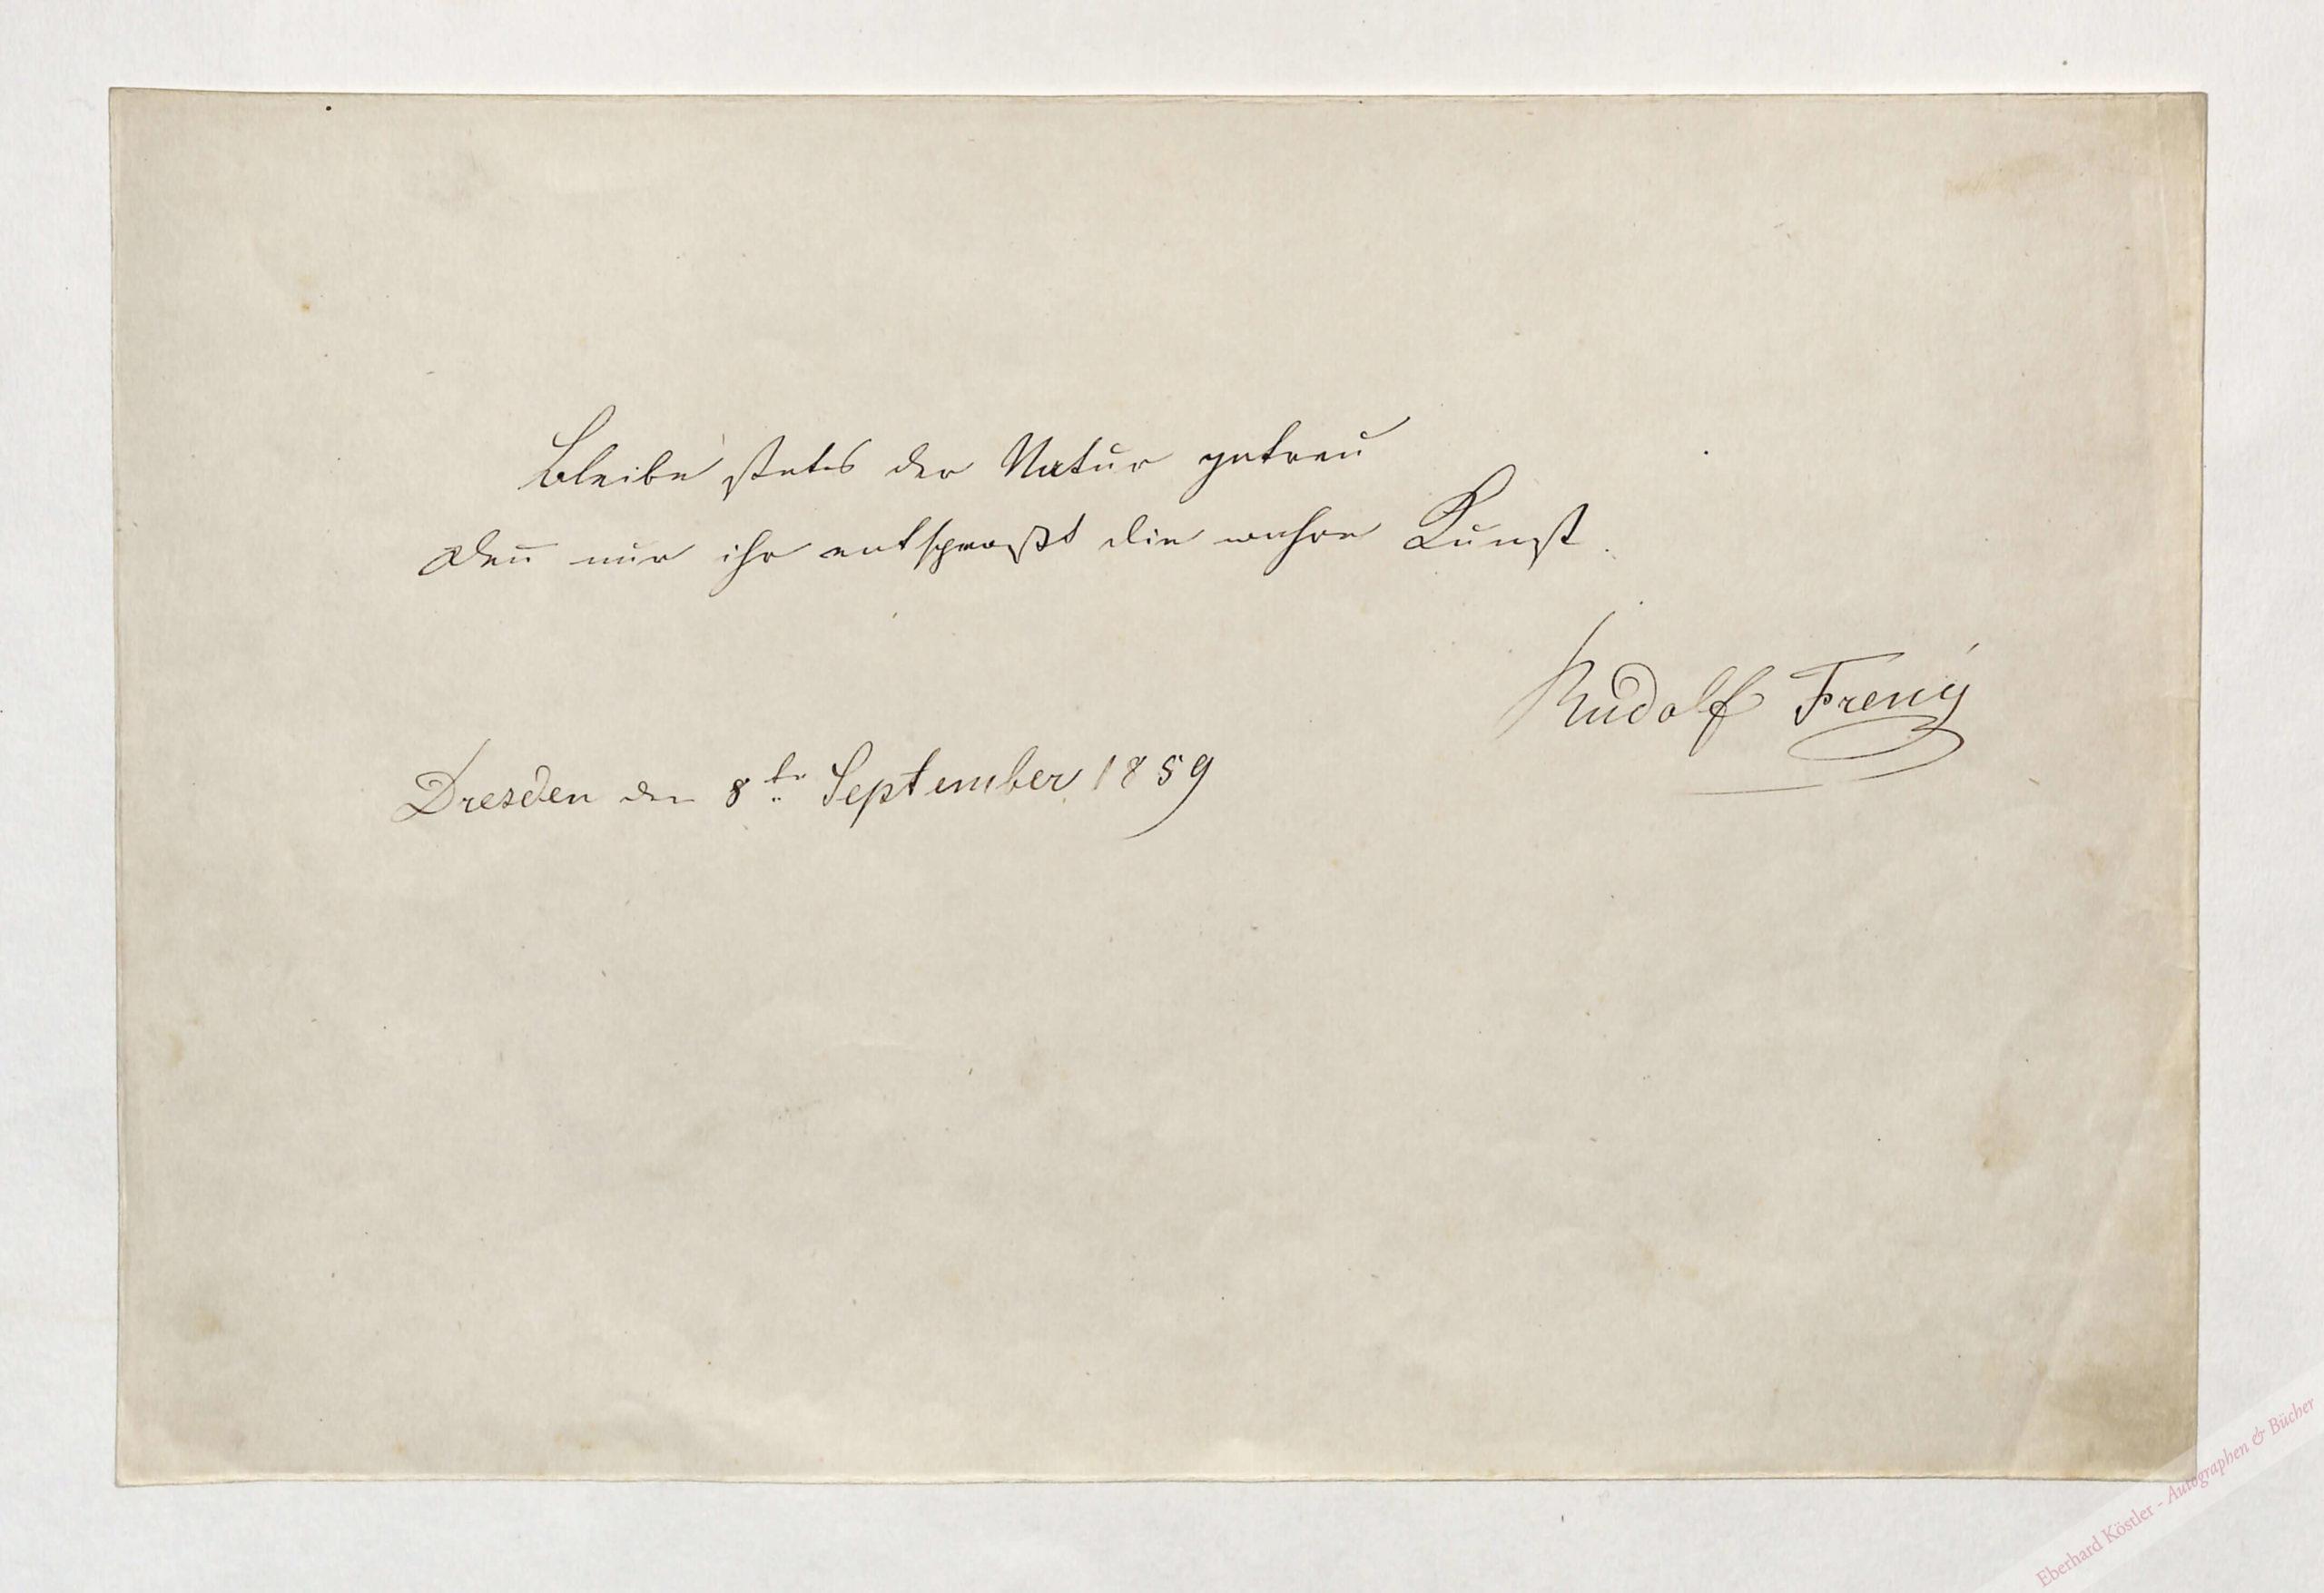 Bleibe stets der Natur getreu
Deñ nur ihr entsproßt die wahre Kunst.
Rudolf Freny
Dresden den 8te September 1859
Eberhard Köstler - Autographen & Bücher